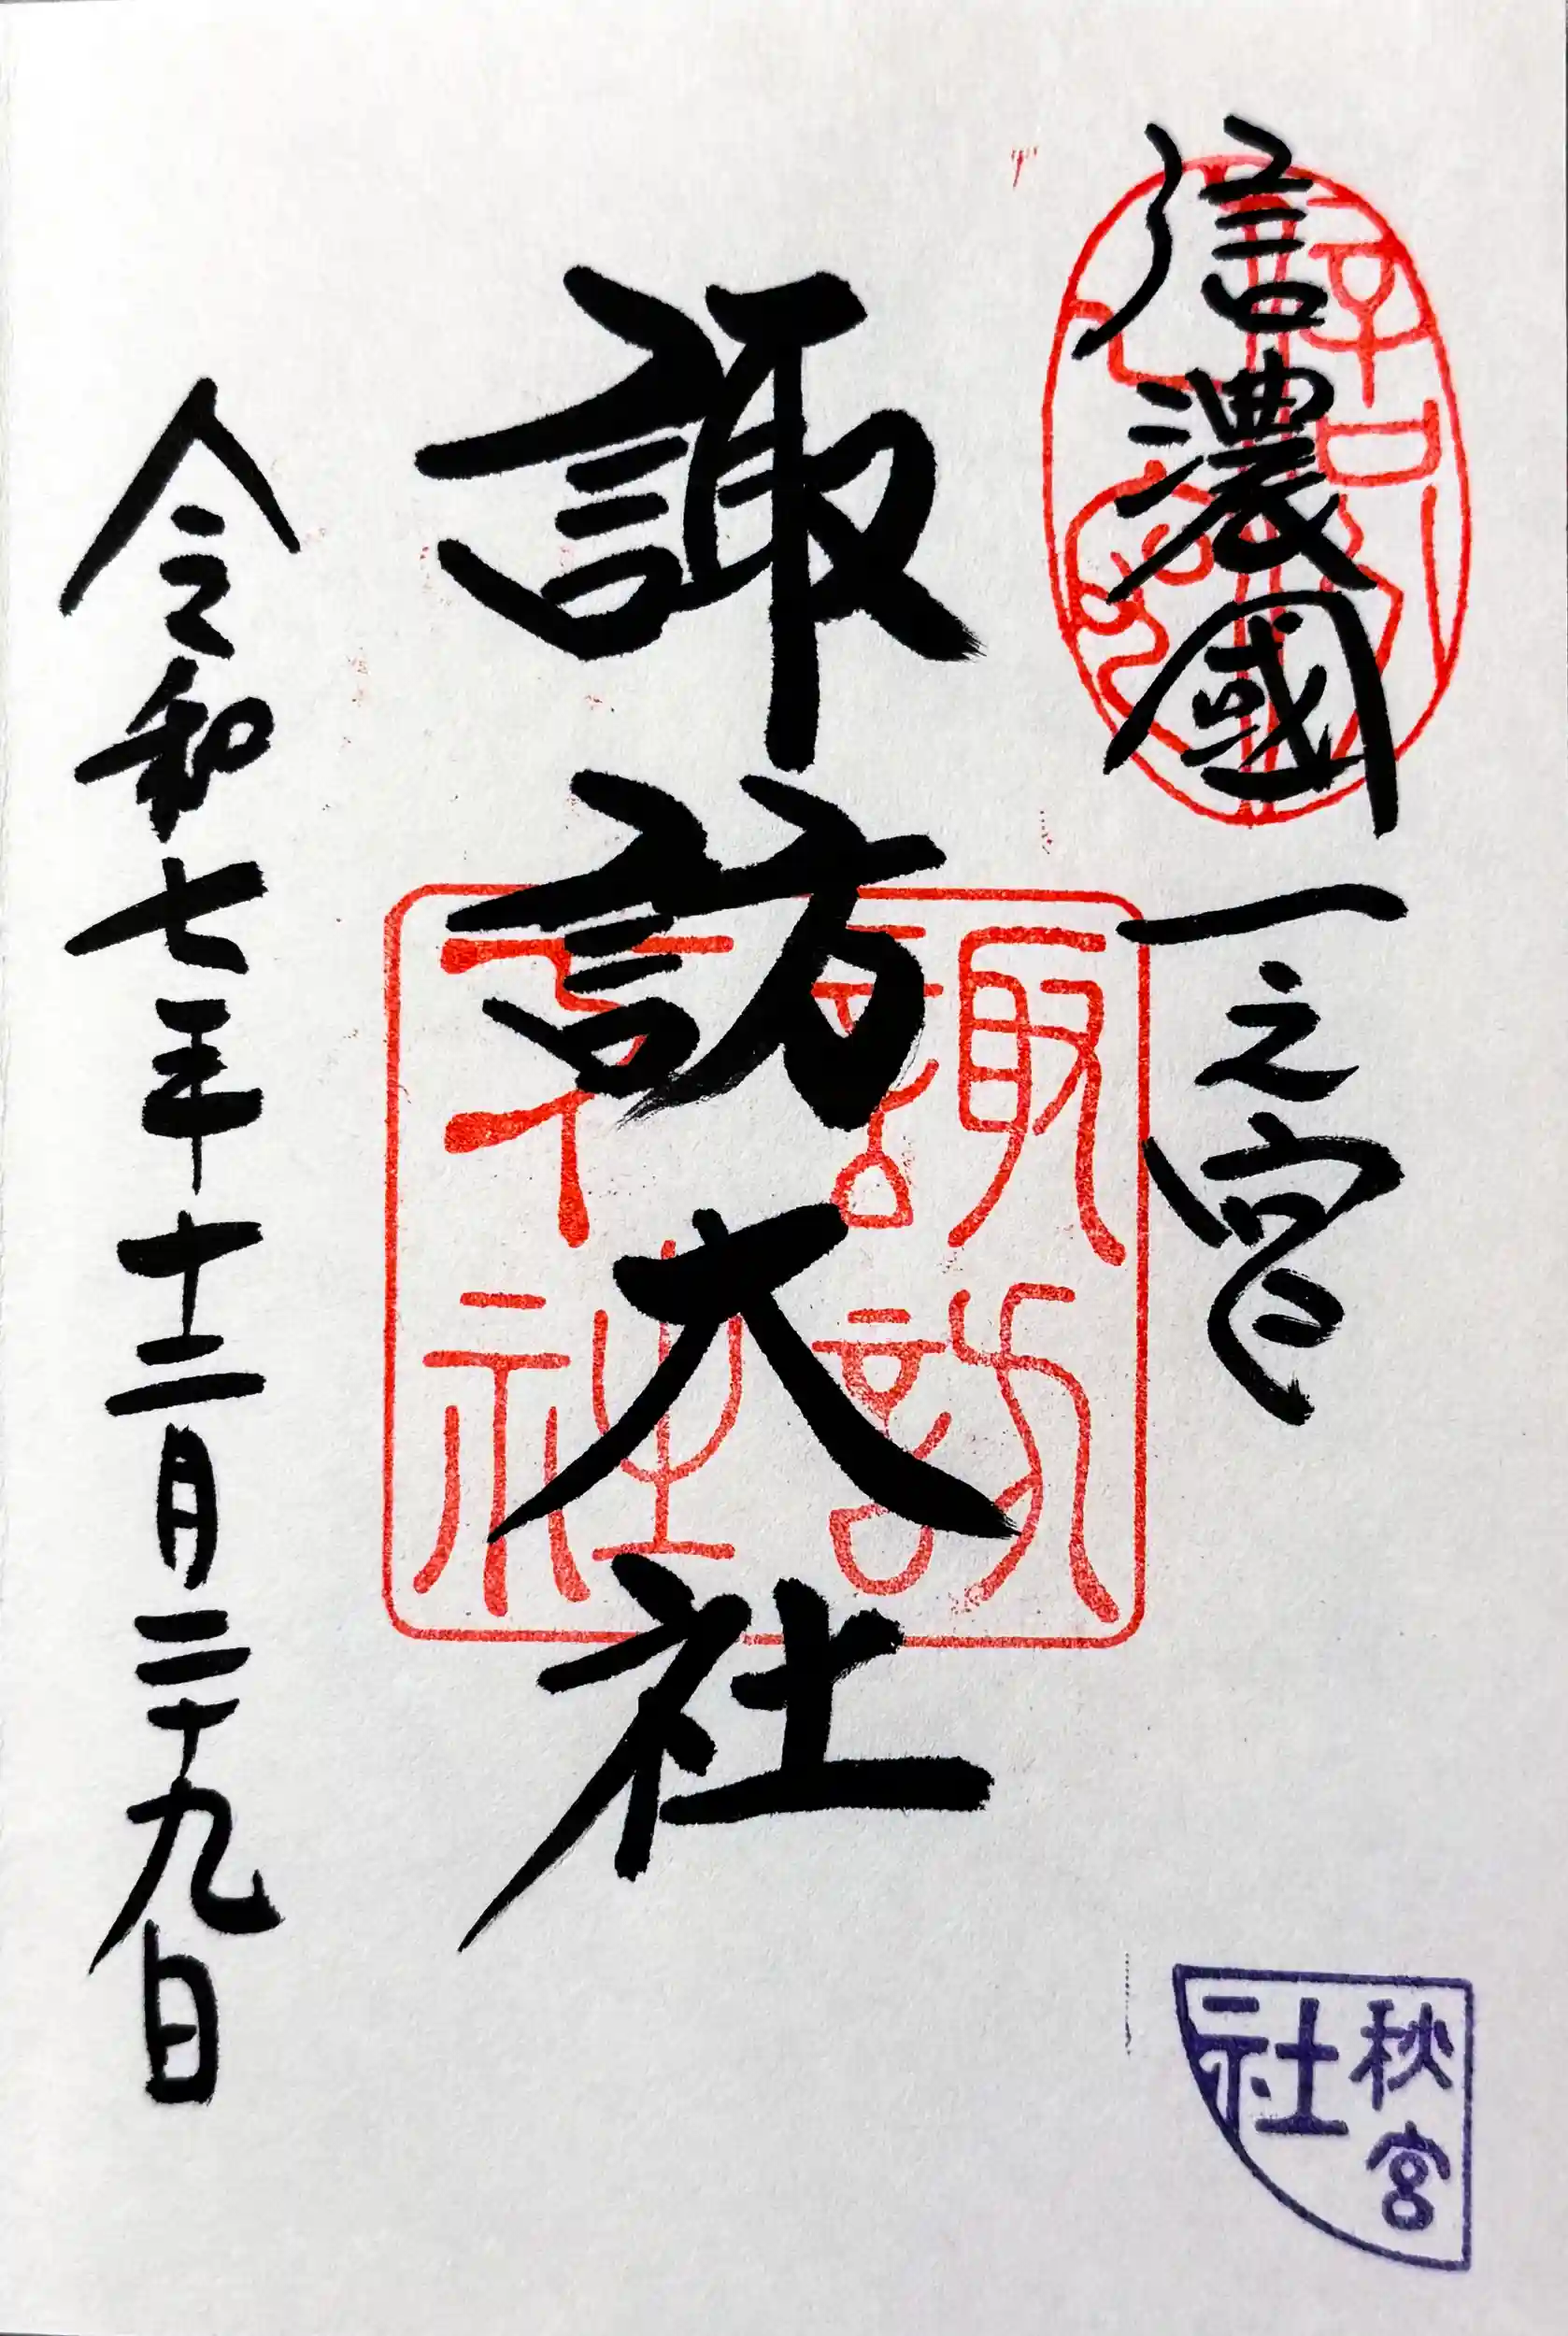 信濃國一之宮
諏訪大社
令和七年十二月二十九日
諏訪
大社
秋宮
社